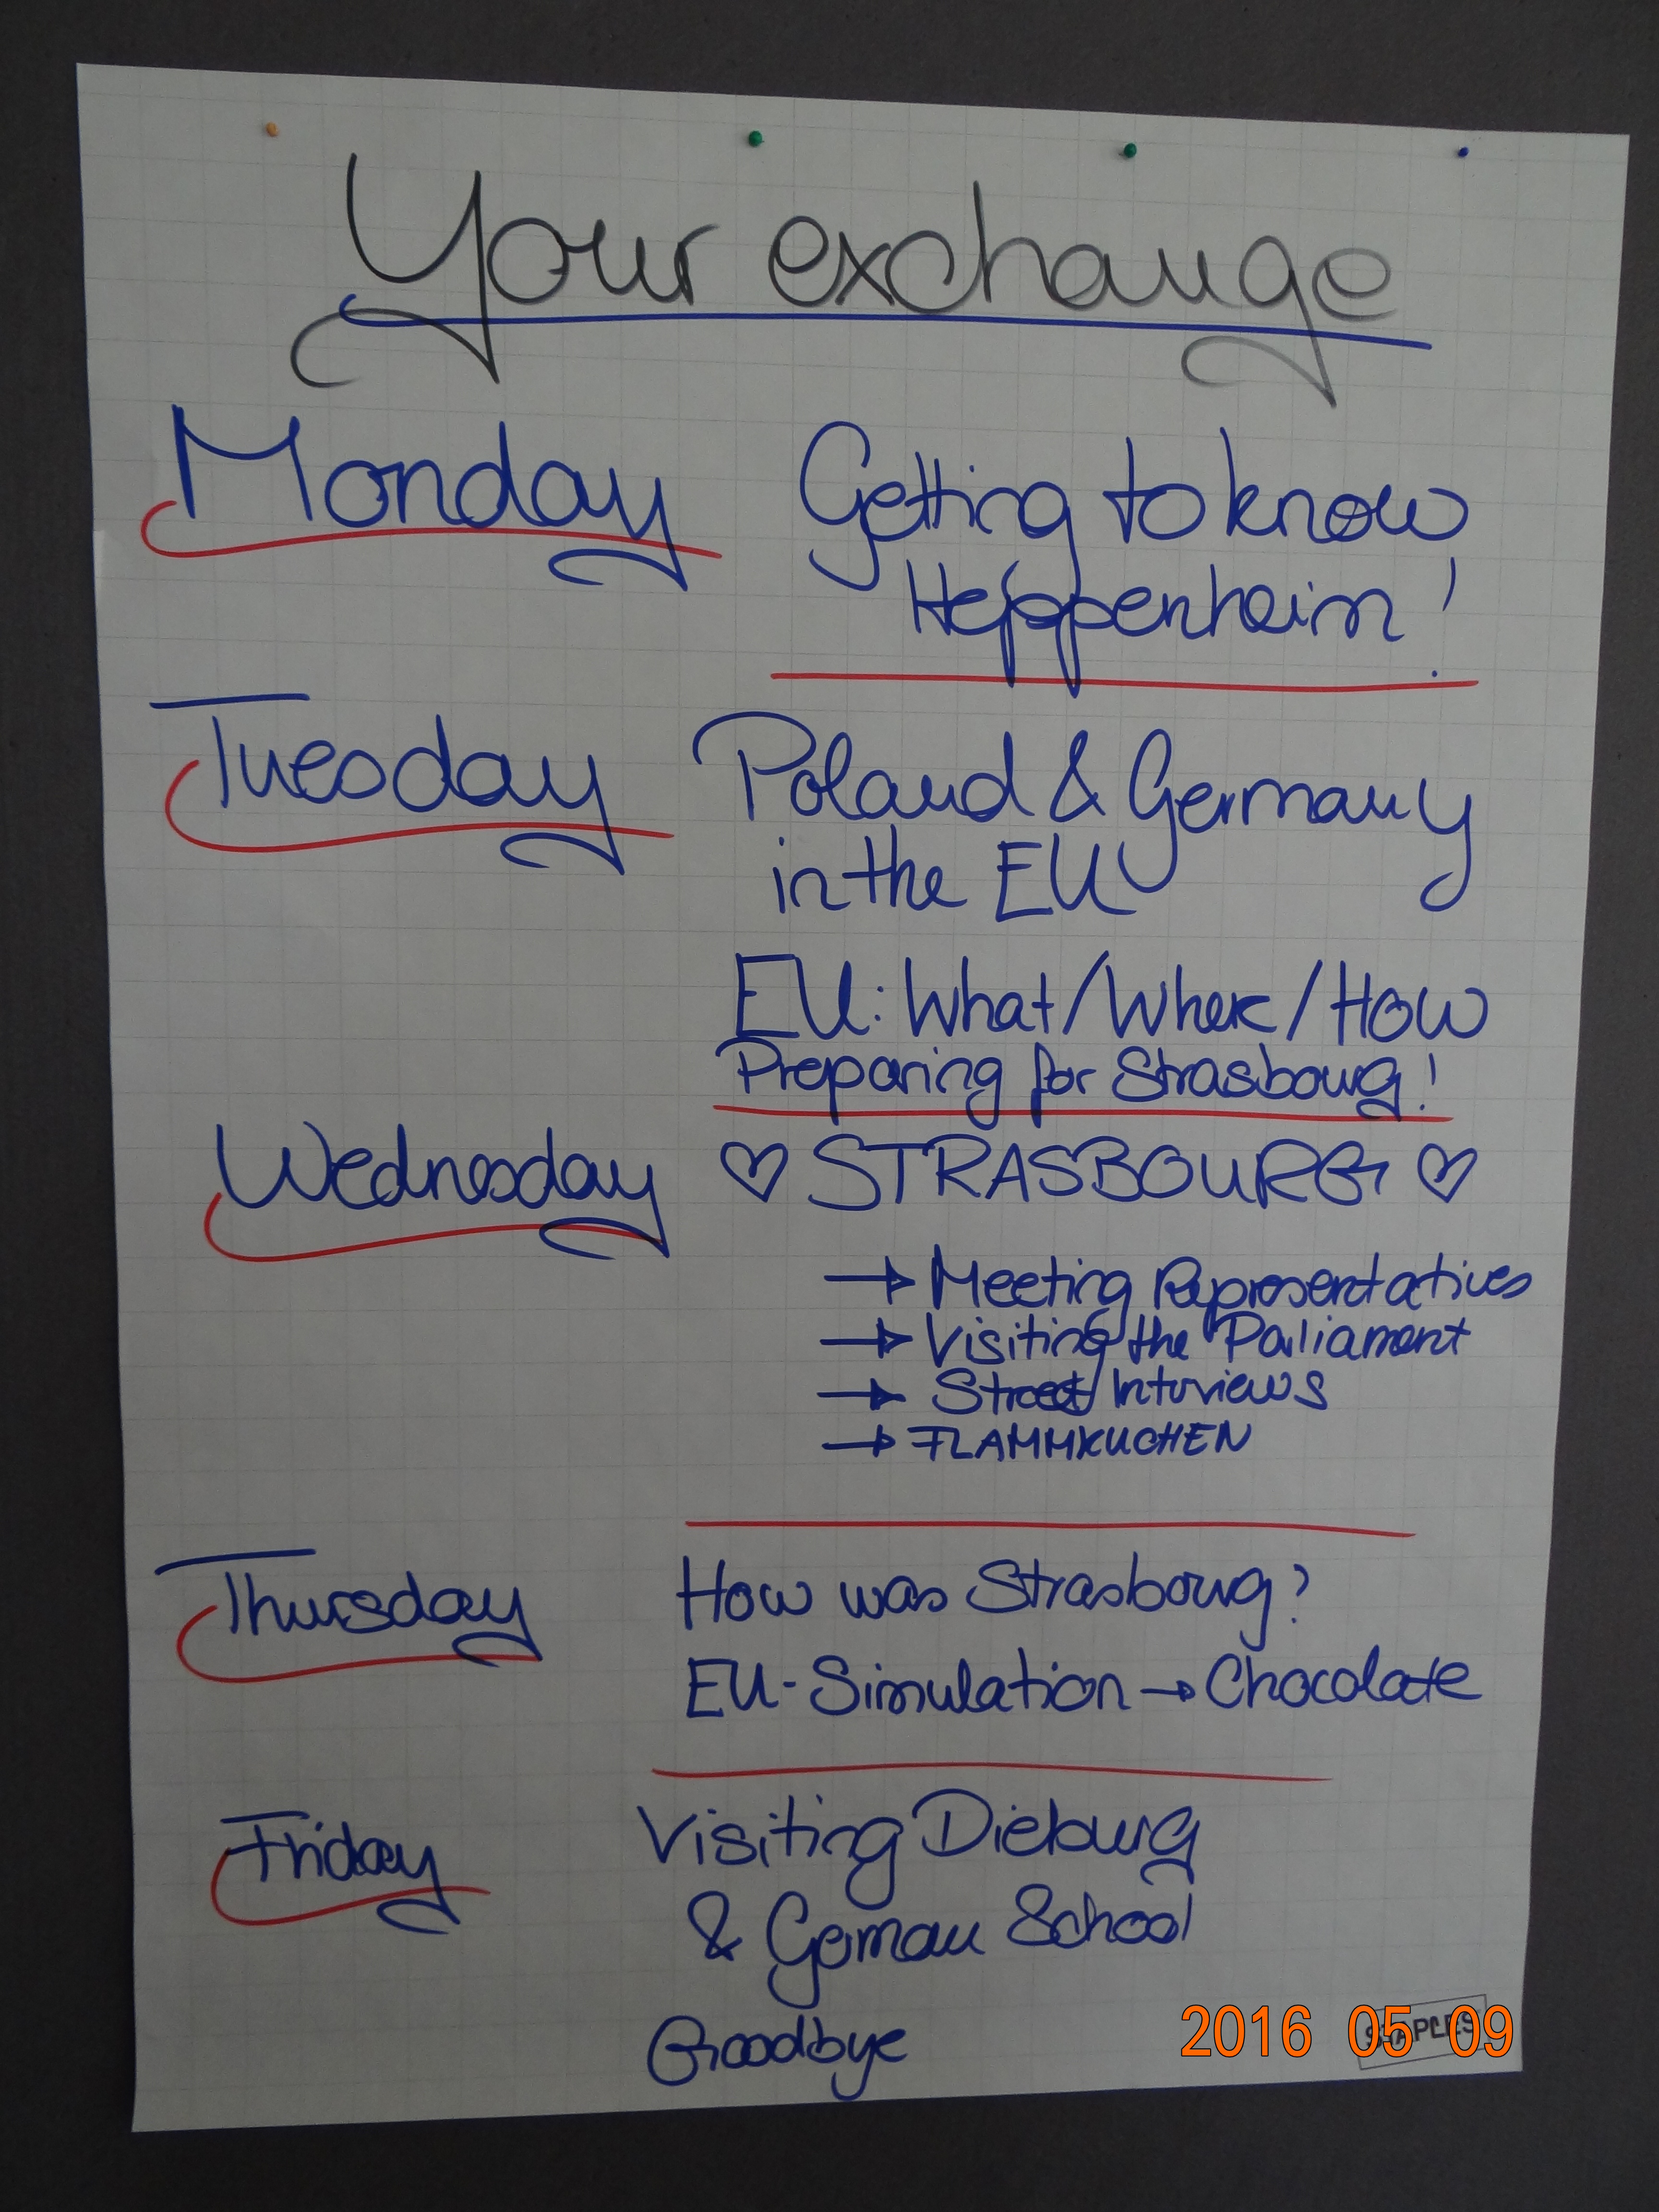 Your exchange
Monday Getting to know
Heppenheim!
Tuesday Poland & Germany
in the EU
EU: What/Where/How
Preparing for Strasbourg!
Wednesday ♡ STRASBOURG ♡
→ Meeting Representatives
→ Visiting the Parliament
→ Street Interviews
→ FLAMMKUCHEN
Thursday How was Strasbourg?
EU-Simulation → Chocolate
Friday Visiting Dieburg
& German School
Goodbye
2016 05 09
STAPLES